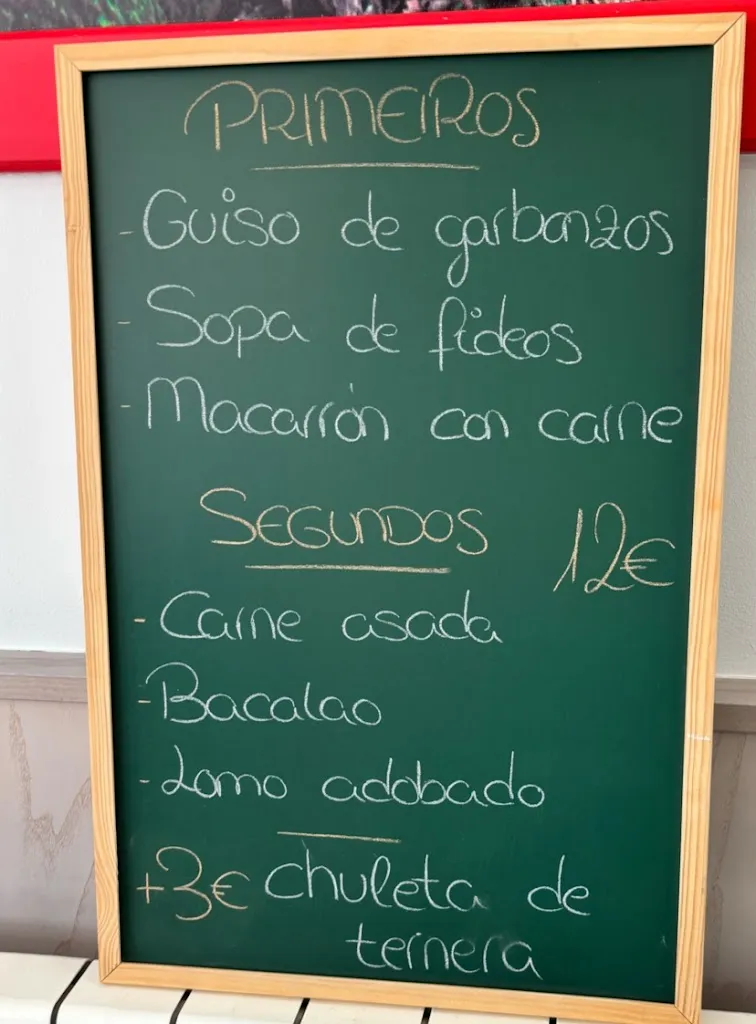 PRIMEIROS
- Guiso de garbanzos
- Sopa de fideos
- Macarrón con carne
SEGUNDOS
12€
- Carne asada
- Bacalao
- Lomo adobado
+3€ chuleta de
ternera